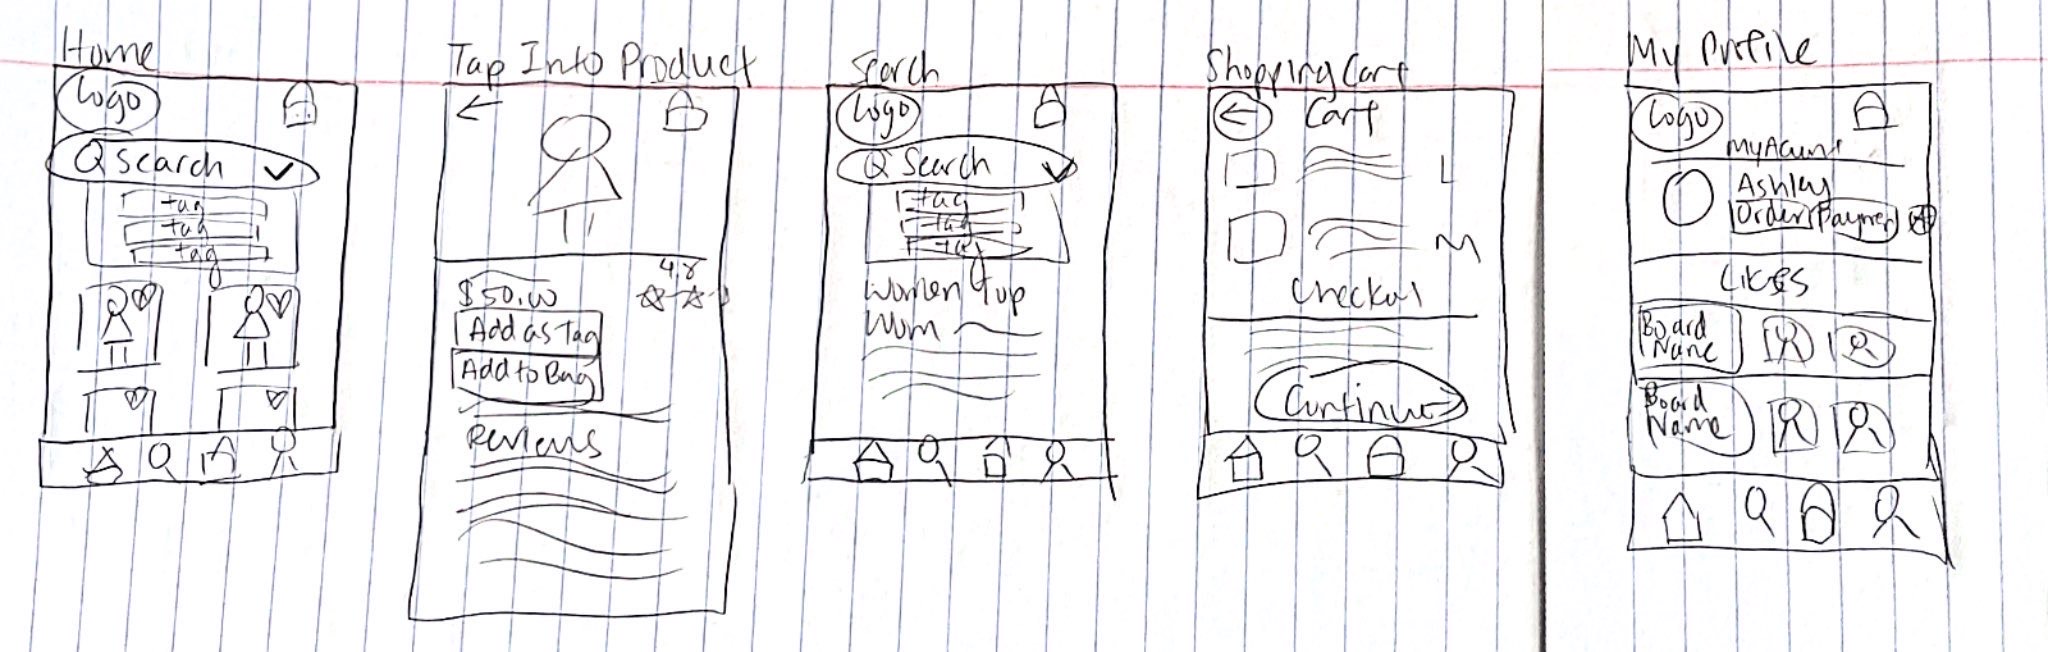 Home
Logo
Search
tag
tag
tag
Tap Into Product
4.8
$50.00
Add as Tag
Add to Bag
Reviews
Search
Logo
Search
tag
tag
tag
Women Top
Wom
Shopping Cart
Cart
L
M
Checkout
Continue
My Profile
Logo
My Account
Ashley
Order Paymen
Likes
Board
Name
Board
Name